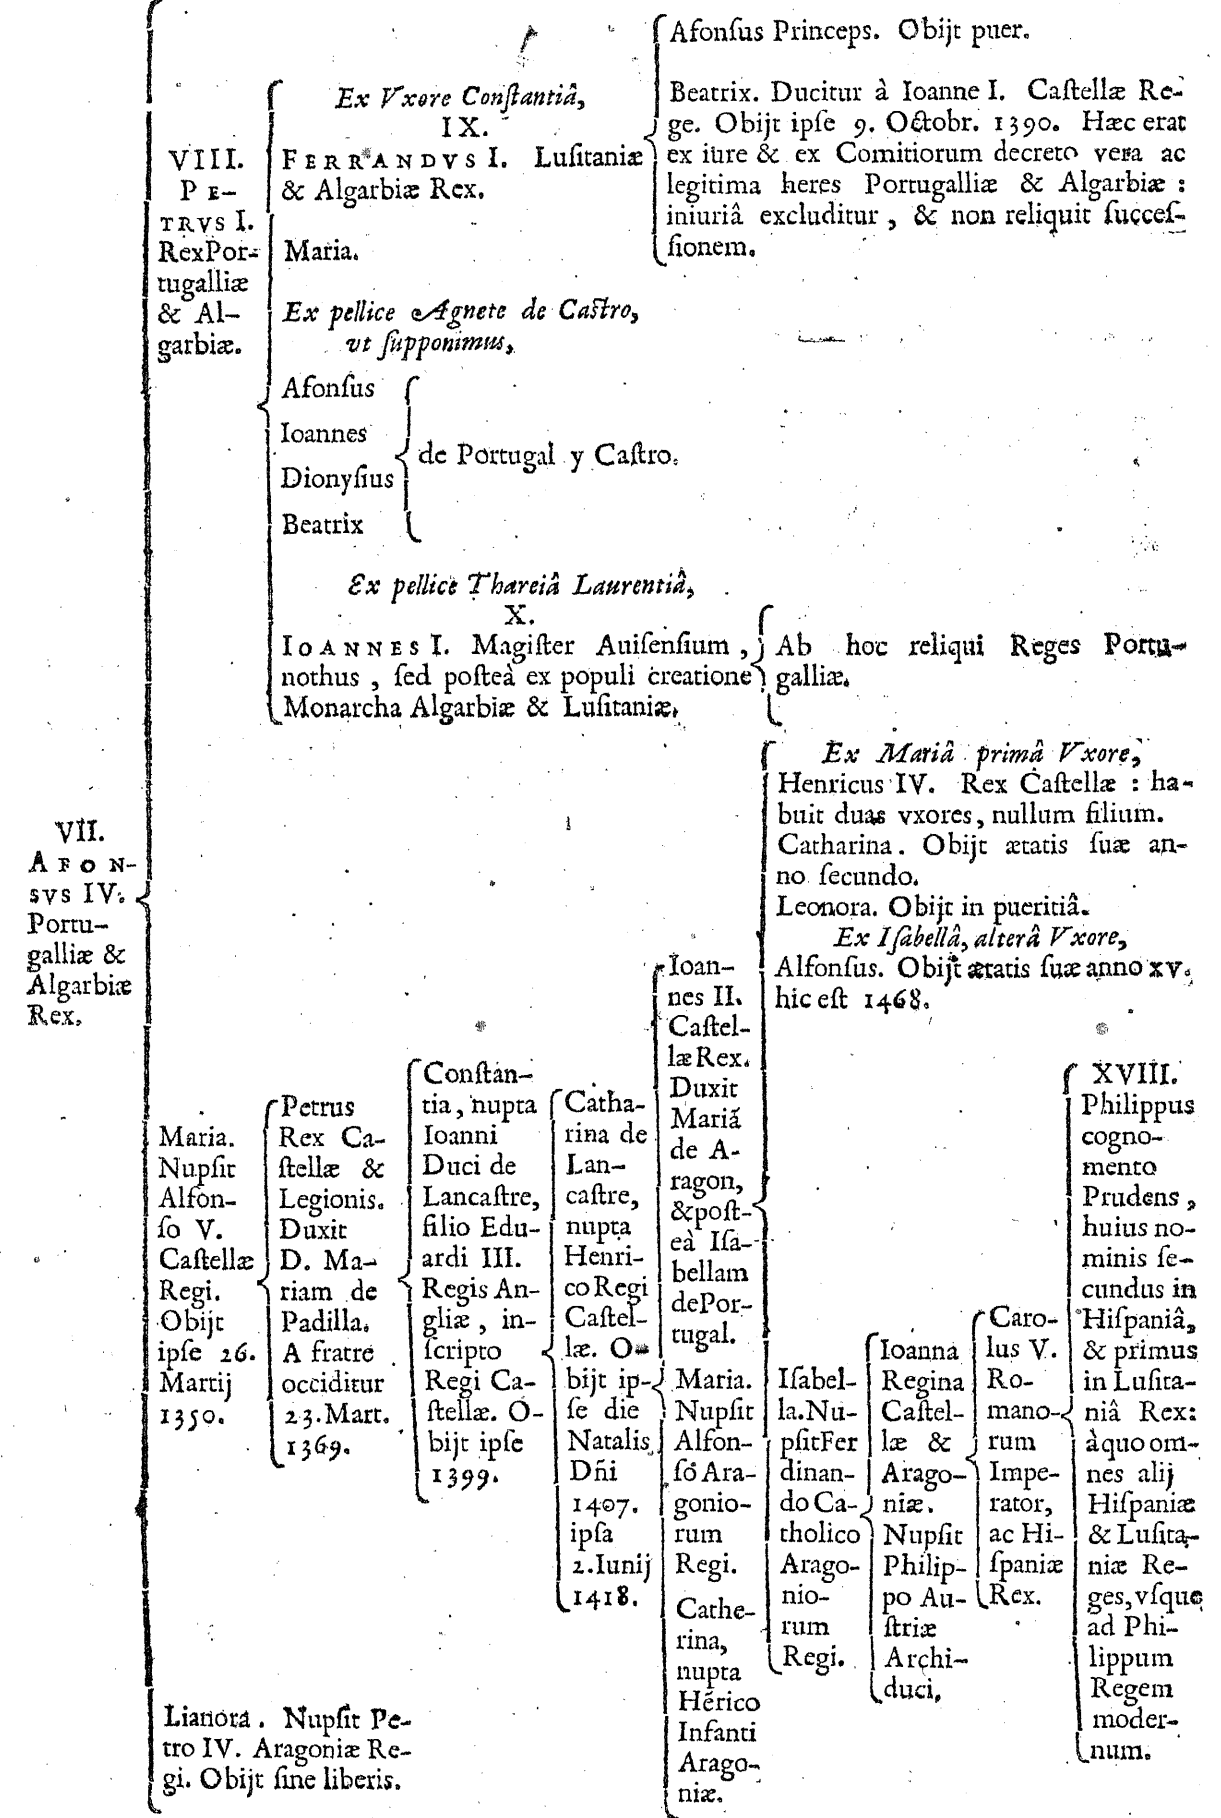 VII.
AFON-
SVS IV.
Portu-
galliæ &
Algarbiæ
Rex.
VIII.
PE-
TRVS I.
RexPor-
tugalliæ
& Al-
garbiæ.
Ex Vxore Conſtantiâ,
IX.
FERRANDVS I. Luſitaniæ
& Algarbiæ Rex.
Afonſus Princeps. Obijt puer.
Beatrix. Ducitur à Ioanne I. Caſtellæ Re-
ge. Obijt ipſe 9. Octobr. 1390. Hæc erat
ex iure & ex Comitiorum decreto vera ac
legitima heres Portugalliæ & Algarbiæ :
iniuriâ excluditur , & non reliquit ſucceſ-
ſionem.
Maria.
Ex pellice Agnete de Caſtro,
vt ſupponimus,
Afonſus
Ioannes
Dionyſius
Beatrix
de Portugal y Caſtro.
Ex pellice Thareiâ Laurentiâ,
X.
IOANNES I. Magiſter Auiſenſium ,
nothus , ſed poſteà ex populi creatione
Monarcha Algarbiæ & Luſitaniæ.
Ab hoc reliqui Reges Portu-
galliæ.
Maria.
Nupſit
Alfon-
ſo V.
Caſtellæ
Regi.
Obijt
ipſe 26.
Martij
1350.
Petrus
Rex Ca-
ſtellæ &
Legionis.
Duxit
D. Ma-
riam de
Padilla.
A fratre
occiditur
23.Mart.
1369.
Conſtan-
tia, nupta
Ioanni
Duci de
Lancaſtre,
filio Edu-
ardi III.
Regis An-
gliæ , in-
ſcripto
Regi Ca-
ſtellæ. O-
bijt ipſe
1399.
Catha-
rina de
Lan-
caſtre,
nupta
Henri-
co Regi
Caſtel-
læ. O-
bijt ip-
ſe die
Natalis
Dñi
1407.
ipſa
2.Iunij
1418.
Ioan-
nes II.
Caſtel-
læ Rex.
Duxit
Mariá
de A-
ragon,
&poſt-
eà Iſa-
bellam
dePor-
tugal.
Ex Mariâ primâ Vxore,
Henricus IV. Rex Caſtellæ : ha-
buit duas vxores, nullum filium.
Catharina. Obijt ætatis ſuæ an-
no ſecundo.
Leonora. Obijt in pueritiâ.
Ex Iſabellâ, alterâ Vxore,
Alfonſus. Obijt ætatis ſuæ anno xv.
hic eſt 1468.
Iſabel-
la.Nu-
pſitFer
dinan-
do Ca-
tholico
Arago-
nio-
rum
Regi.
Ioanna
Regina
Caſtel-
læ &
Arago-
niæ.
Nupſit
Philip-
po Au-
ſtriæ
Archi-
duci,
Caro-
lus V.
Ro-
mano-
rum
Impe-
rator,
ac Hi-
ſpaniæ
Rex.
XVIII.
Philippus
cogno-
mento
Prudens ,
huius no-
minis ſe-
cundus in
Hiſpaniâ,
& primus
in Luſita-
niâ Rex:
àquo om-
nes alij
Hiſpaniæ
& Luſita-
niæ Re-
ges,vſque
ad Phi-
lippum
Regem
moder-
num.
Maria.
Nupſit
Alfon-
ſó Ara-
gonio-
rum
Regi.
Cathe-
rina,
nupta
Hérico
Infanti
Arago-
niæ.
Lianora . Nupſit Pe-
tro IV. Aragoniæ Re-
gi. Obijt ſine liberis.